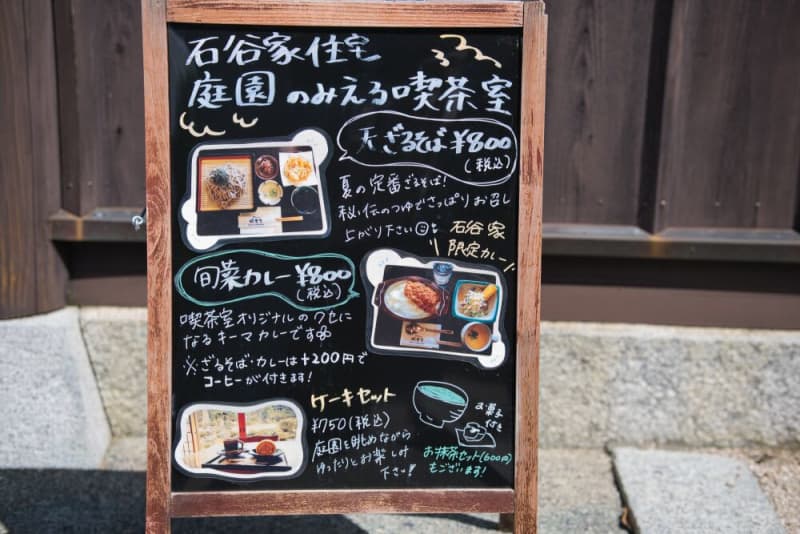 石谷家住宅
庭園のみえる喫茶室
天ざるそば¥800
(税込)
夏の定番ざるそば!
秘伝のつゆでさっぱりお召し
上がり下さい
石谷家
限定カレー
旬菜カレー¥800
(税込)
喫茶室オリジナルのクセに
なるキーマカレーです
※ざるそば・カレーは+200円で
コーヒーが付きます!
ケーキセット
¥750(税込)
庭園を眺めながら
ゆったりとお楽しみ
下さい!
お菓子
付き
お抹茶セット(600円)
もございます!